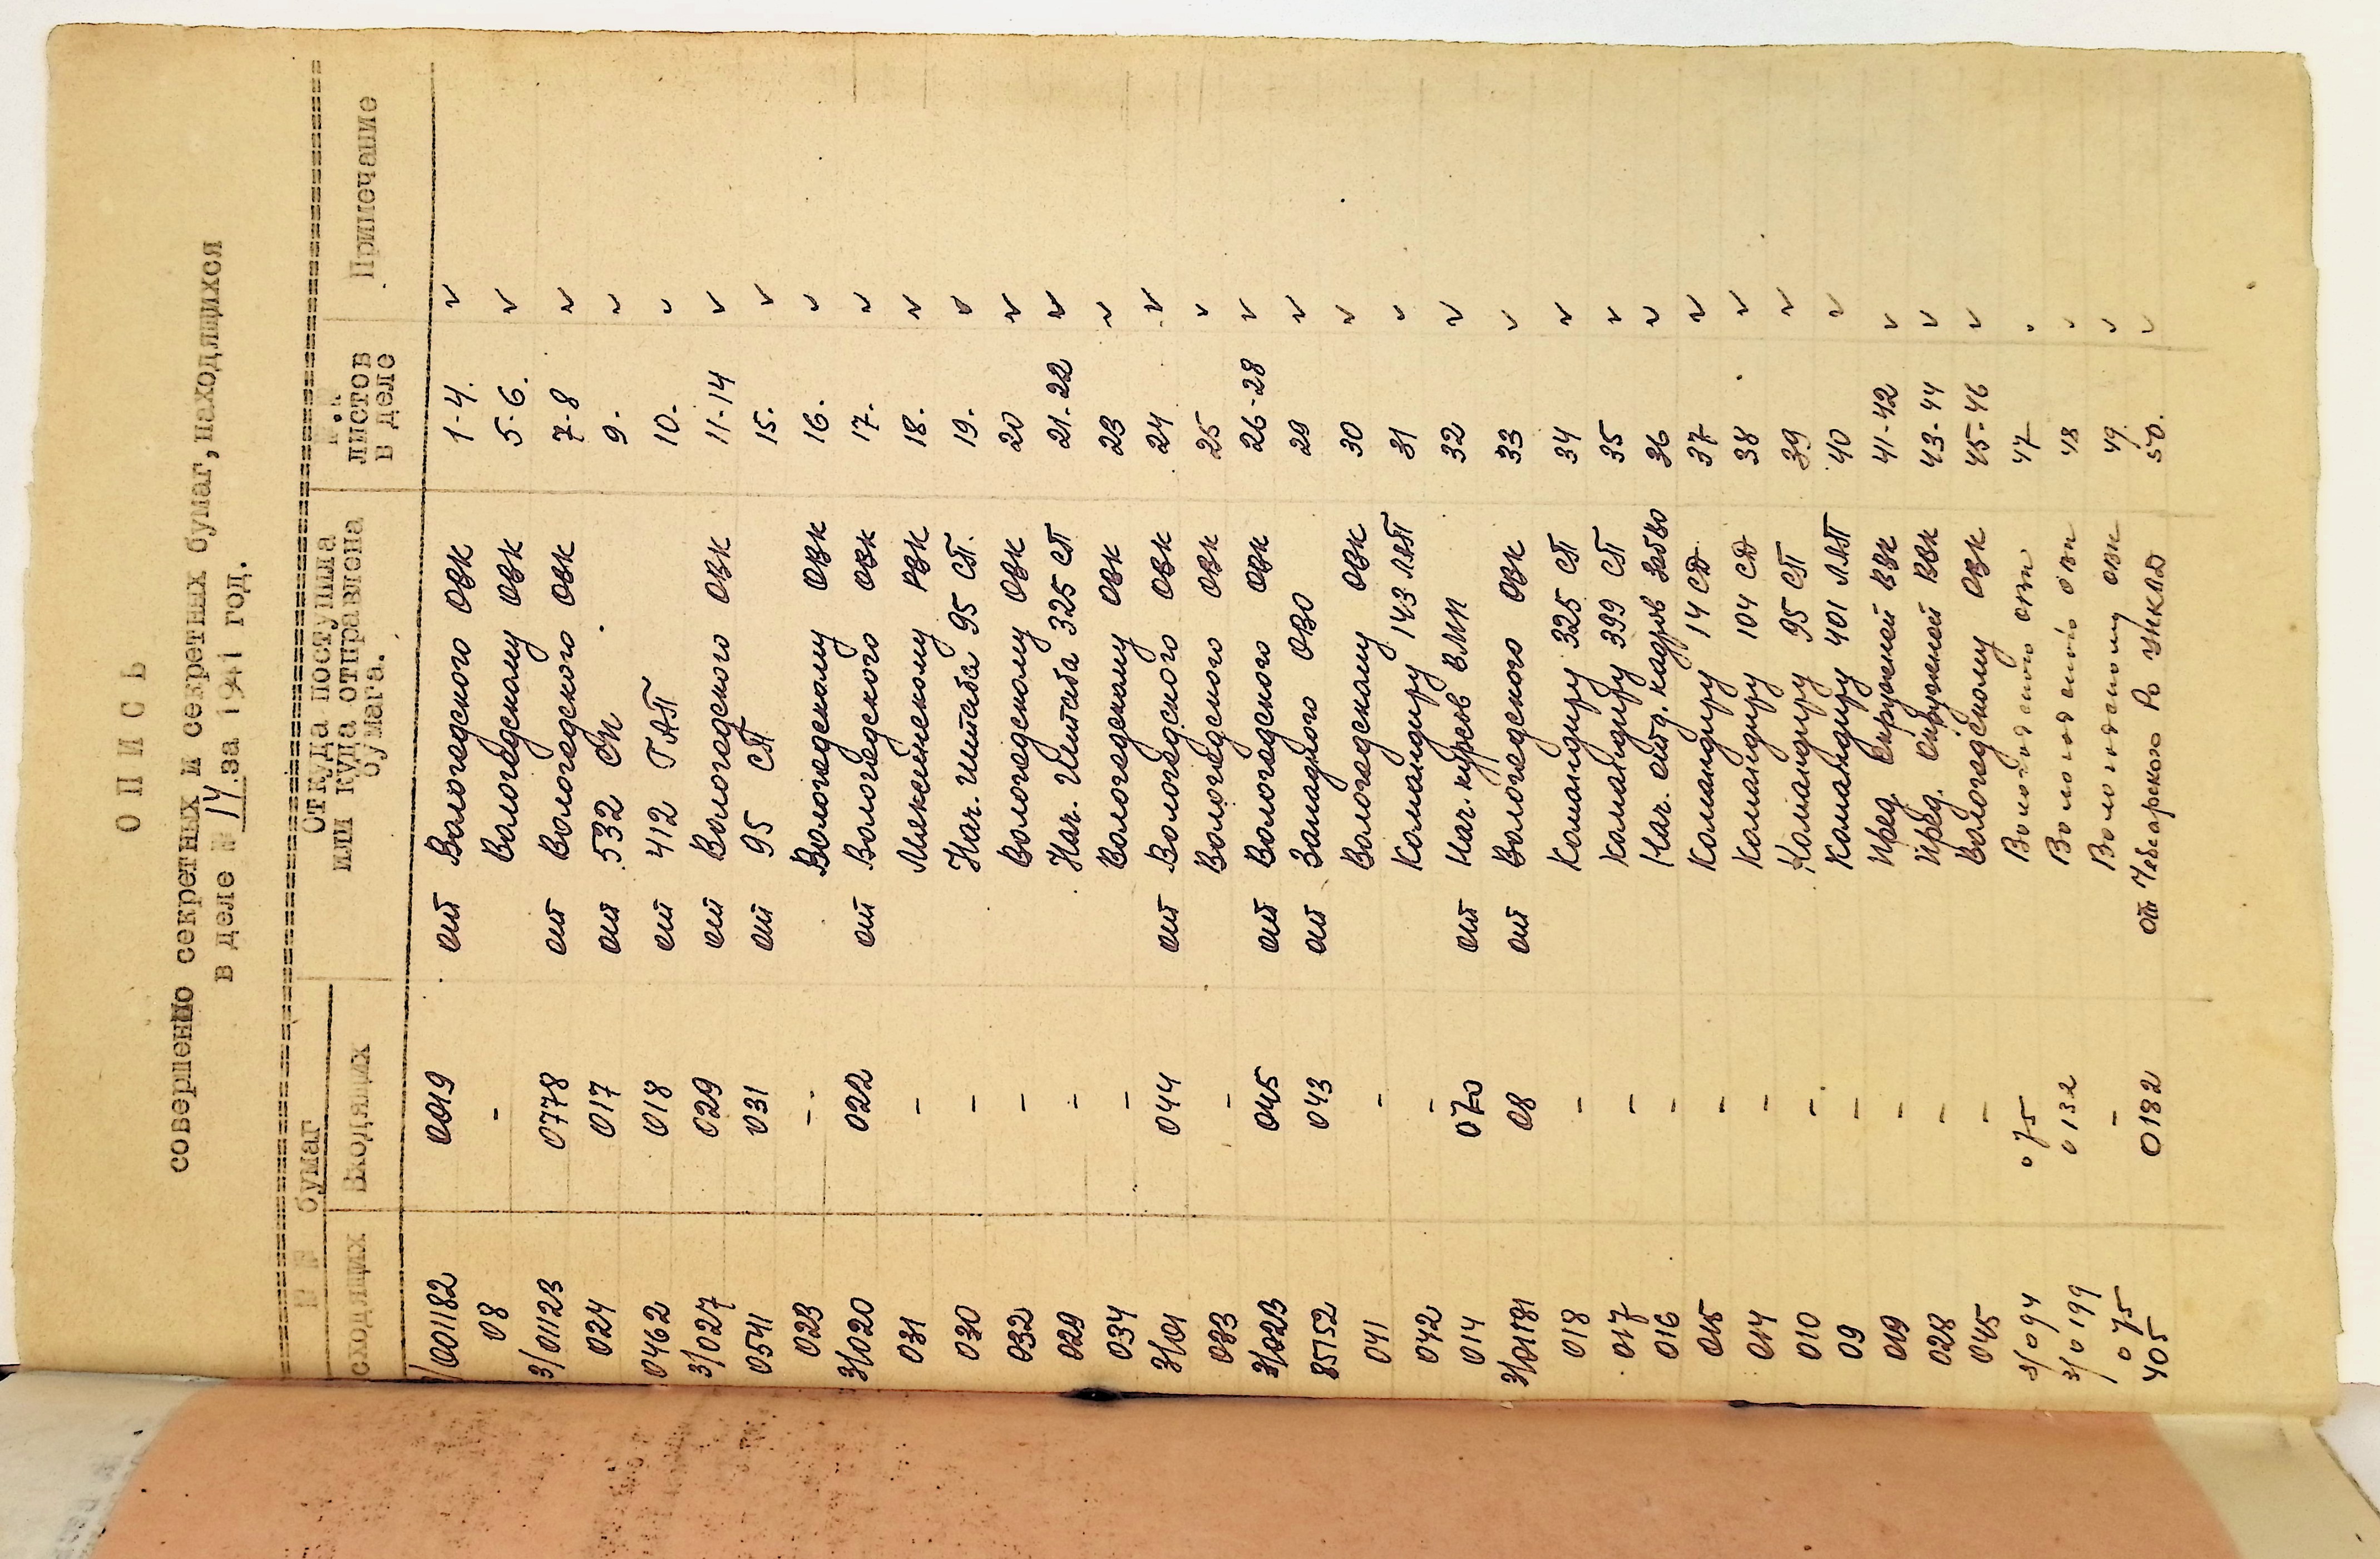 О П И С Ь
совершенно секретных и секретных бумаг, находящихся
в деле № 14 за 1941 год.
№ № бумаг Откуда поступила или куда отправлена бумага. №№ листов в деле Примечание
сходящих Входящих
/001182 0019 от Вологодского ОВК 1-4. ✓
08 - Вологодскому ОВК 5-6. ✓
3/01123 0778 от Вологодского ОВК 7-8 ✓
024 017 от 532 СП 9. ✓
0462 018 от 412 ГАП 10. ✓
3/027 029 от Вологодского ОВК 11-14 ✓
0541 031 от 95 СП 15. ✓
023 - Вологодскому ОВК 16. ✓
3/020 022 от Вологодского ОВК 17. ✓
031 - Мяксинскому РВК 18. ✓
030 - Нач. Штаба 95 СП. 19. ✓
032 - Вологодскому ОВК 20 ✓
029 - Нач. Штаба 325 СП 21-22 ✓
034 - Вологодскому ОВК 23 ✓
3/01 044 от Вологодского ОВК 24 ✓
033 - Вологодского ОВК 25 ✓
3/023 045 от Вологодского ОВК 26-28 ✓
85152 043 от Западного ОВО 29 ✓
041 - Вологодскому ОВК 30 ✓
042 - Командиру 143 ЛАП 31 ✓
014 070 от Нач. курсов 32 ✓
3/01181 08 от Вологодского ОВК 33 ✓
018 - Командиру 325 СП 34 ✓
017 - Командиру 399 СП 35 ✓
016 - Нач. отд. кадров ЗабВО 36 ✓
015 - Командиру 14 СД 37 ✓
014 - Командиру 104 СД 38 ✓
010 - Командиру 95 СП 39 ✓
09 - Командиру 401 ЛАП 40 ✓
019 - Пред. Окружной ВВК 41-42 ✓
028 - Пред. Окружной ВВК 43-44 ✓
045 - Вологодскому ОВК 45-46 ✓
3/094 075 Вологодского 47
3/0199 0132 Вологодского ОВК 48 ✓
075 - Вологодскому ОВК 49. ✓
405 0182 от Чебсарского РО НКВД 50. ✓